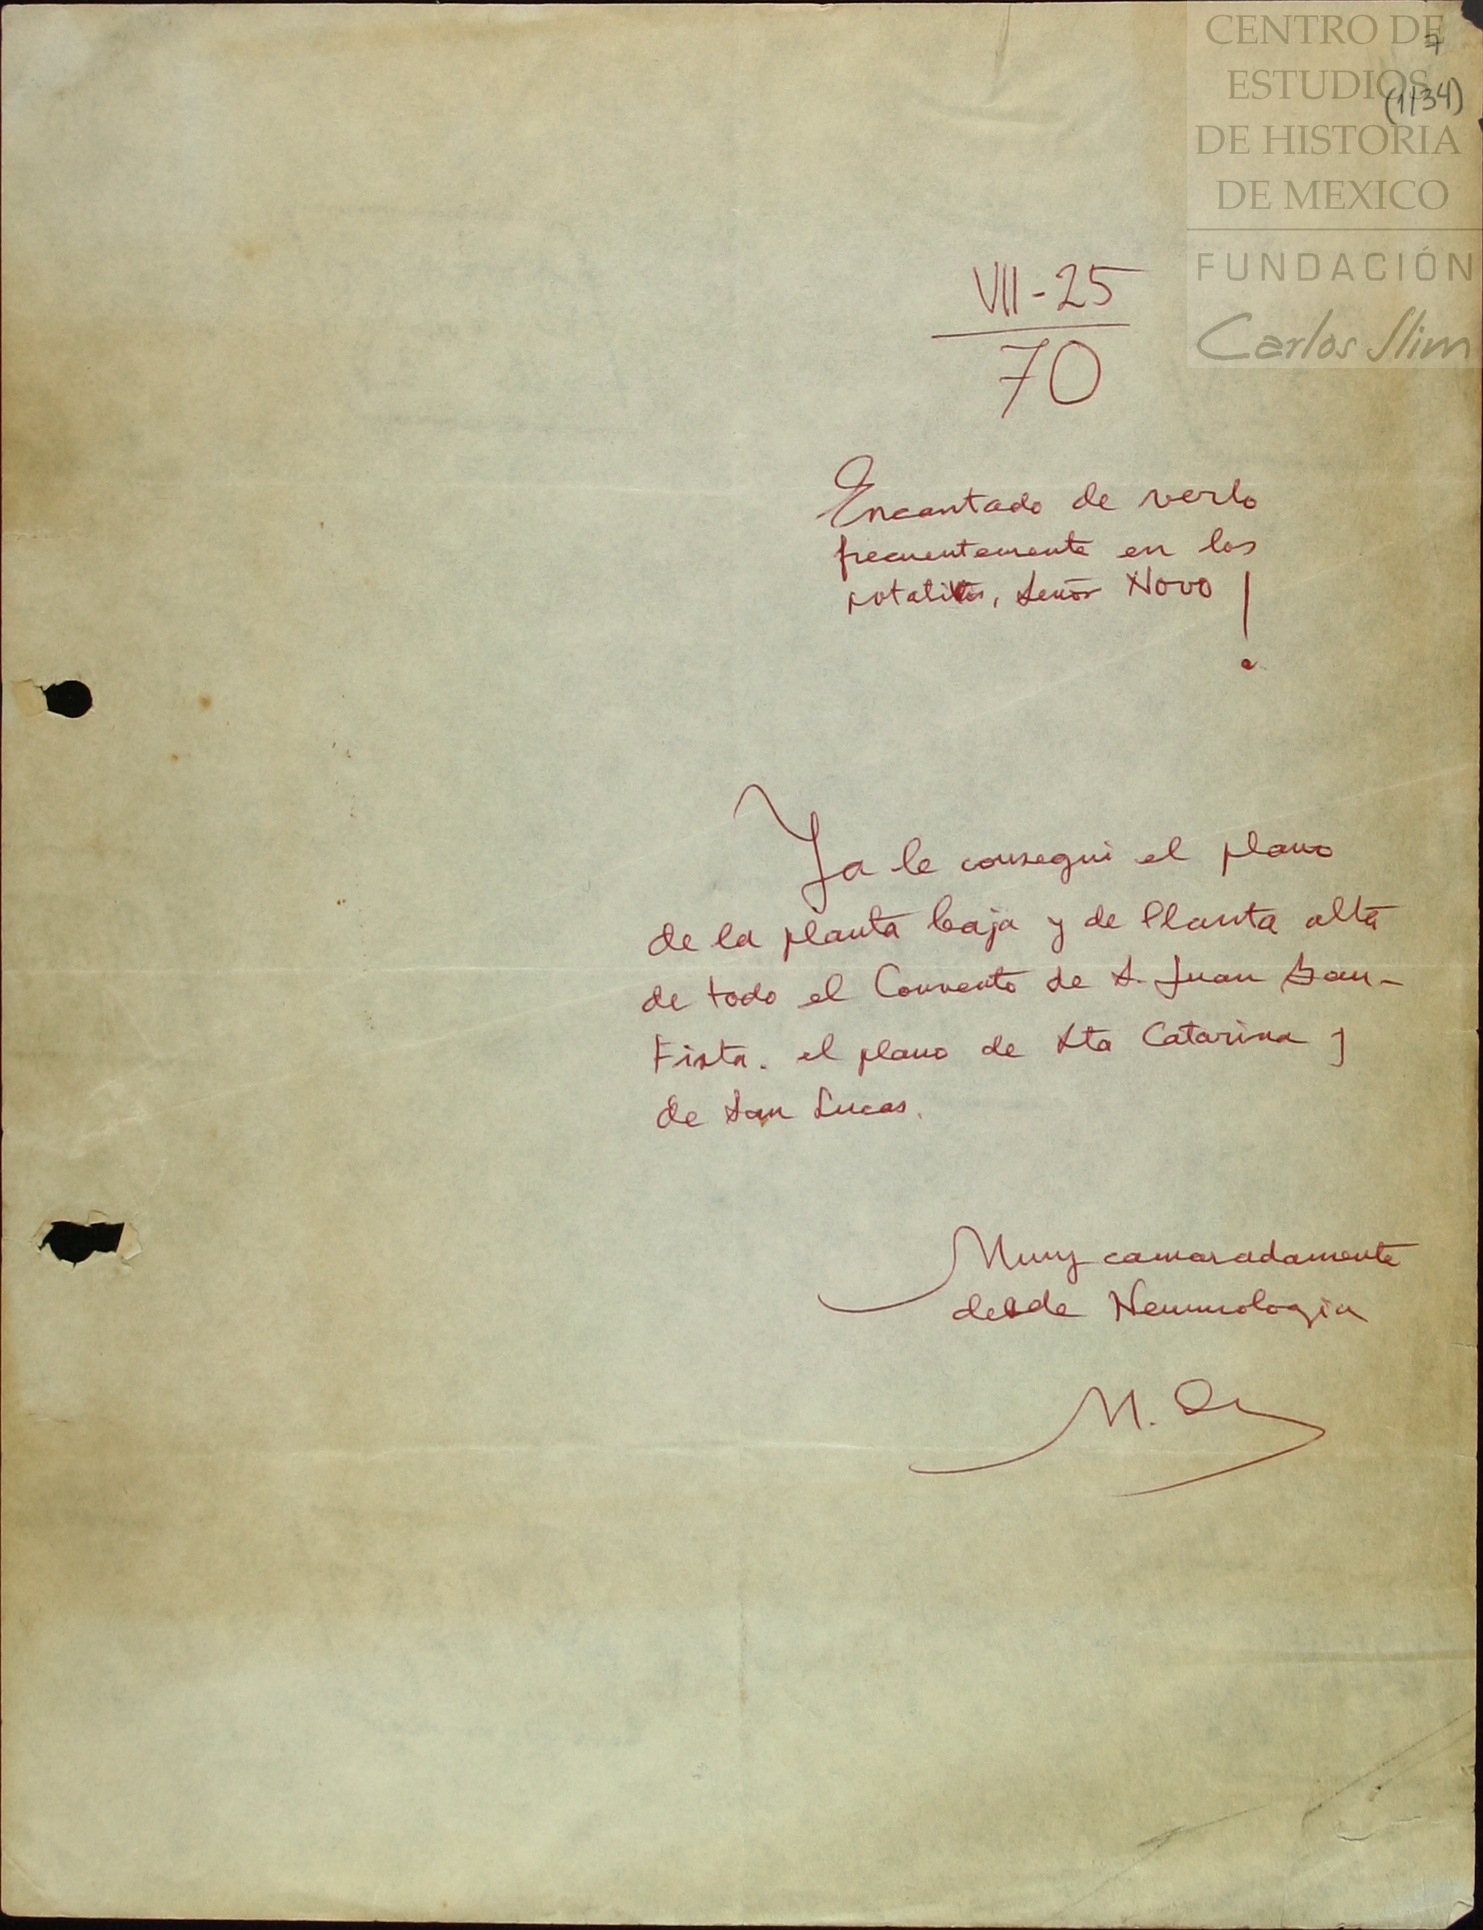 CENTRO DE
ESTUDIOS
DE HISTORIA
DE MEXICO
FUNDACIÓN
Carlos Slim
7
(1134)
VII-25
70
Encantado de verlo
frecuentemente en los
rotativos, Señor Novo!
Ya le consegui el plano
de la planta baja y de Planta alta
de todo el Convento de S. Juan Bau-
tista. el plano de Sta Catarina y
de San Lucas.
Muy camaradamente
desde Neumologia
M.